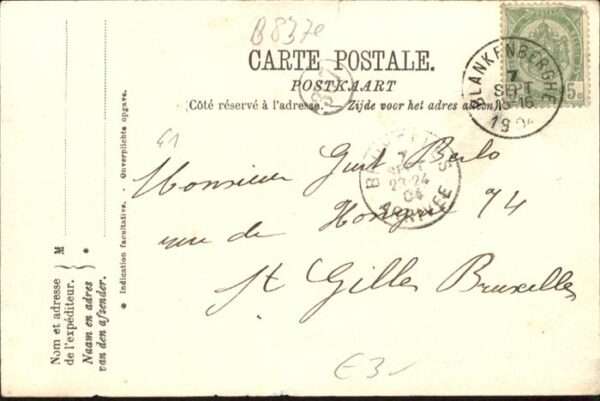 B837e
CARTE POSTALE.
POSTKAART
Côté réservé à l'adresse. – Zijde voor het adres
BLANKENBERGHE
7
SEPT
15-16
1904
5c
41
Monsieur Gust Berlo
rue de Hongrie 74
St Gilles Bruxelles
7
SEPT
23-24
04
ARRIVEE
* Indication facultative. - Onverplichte opgave.
M
*
Nom et adresse
de l'expéditeur.
Naam en adres
van den afzender.
E3